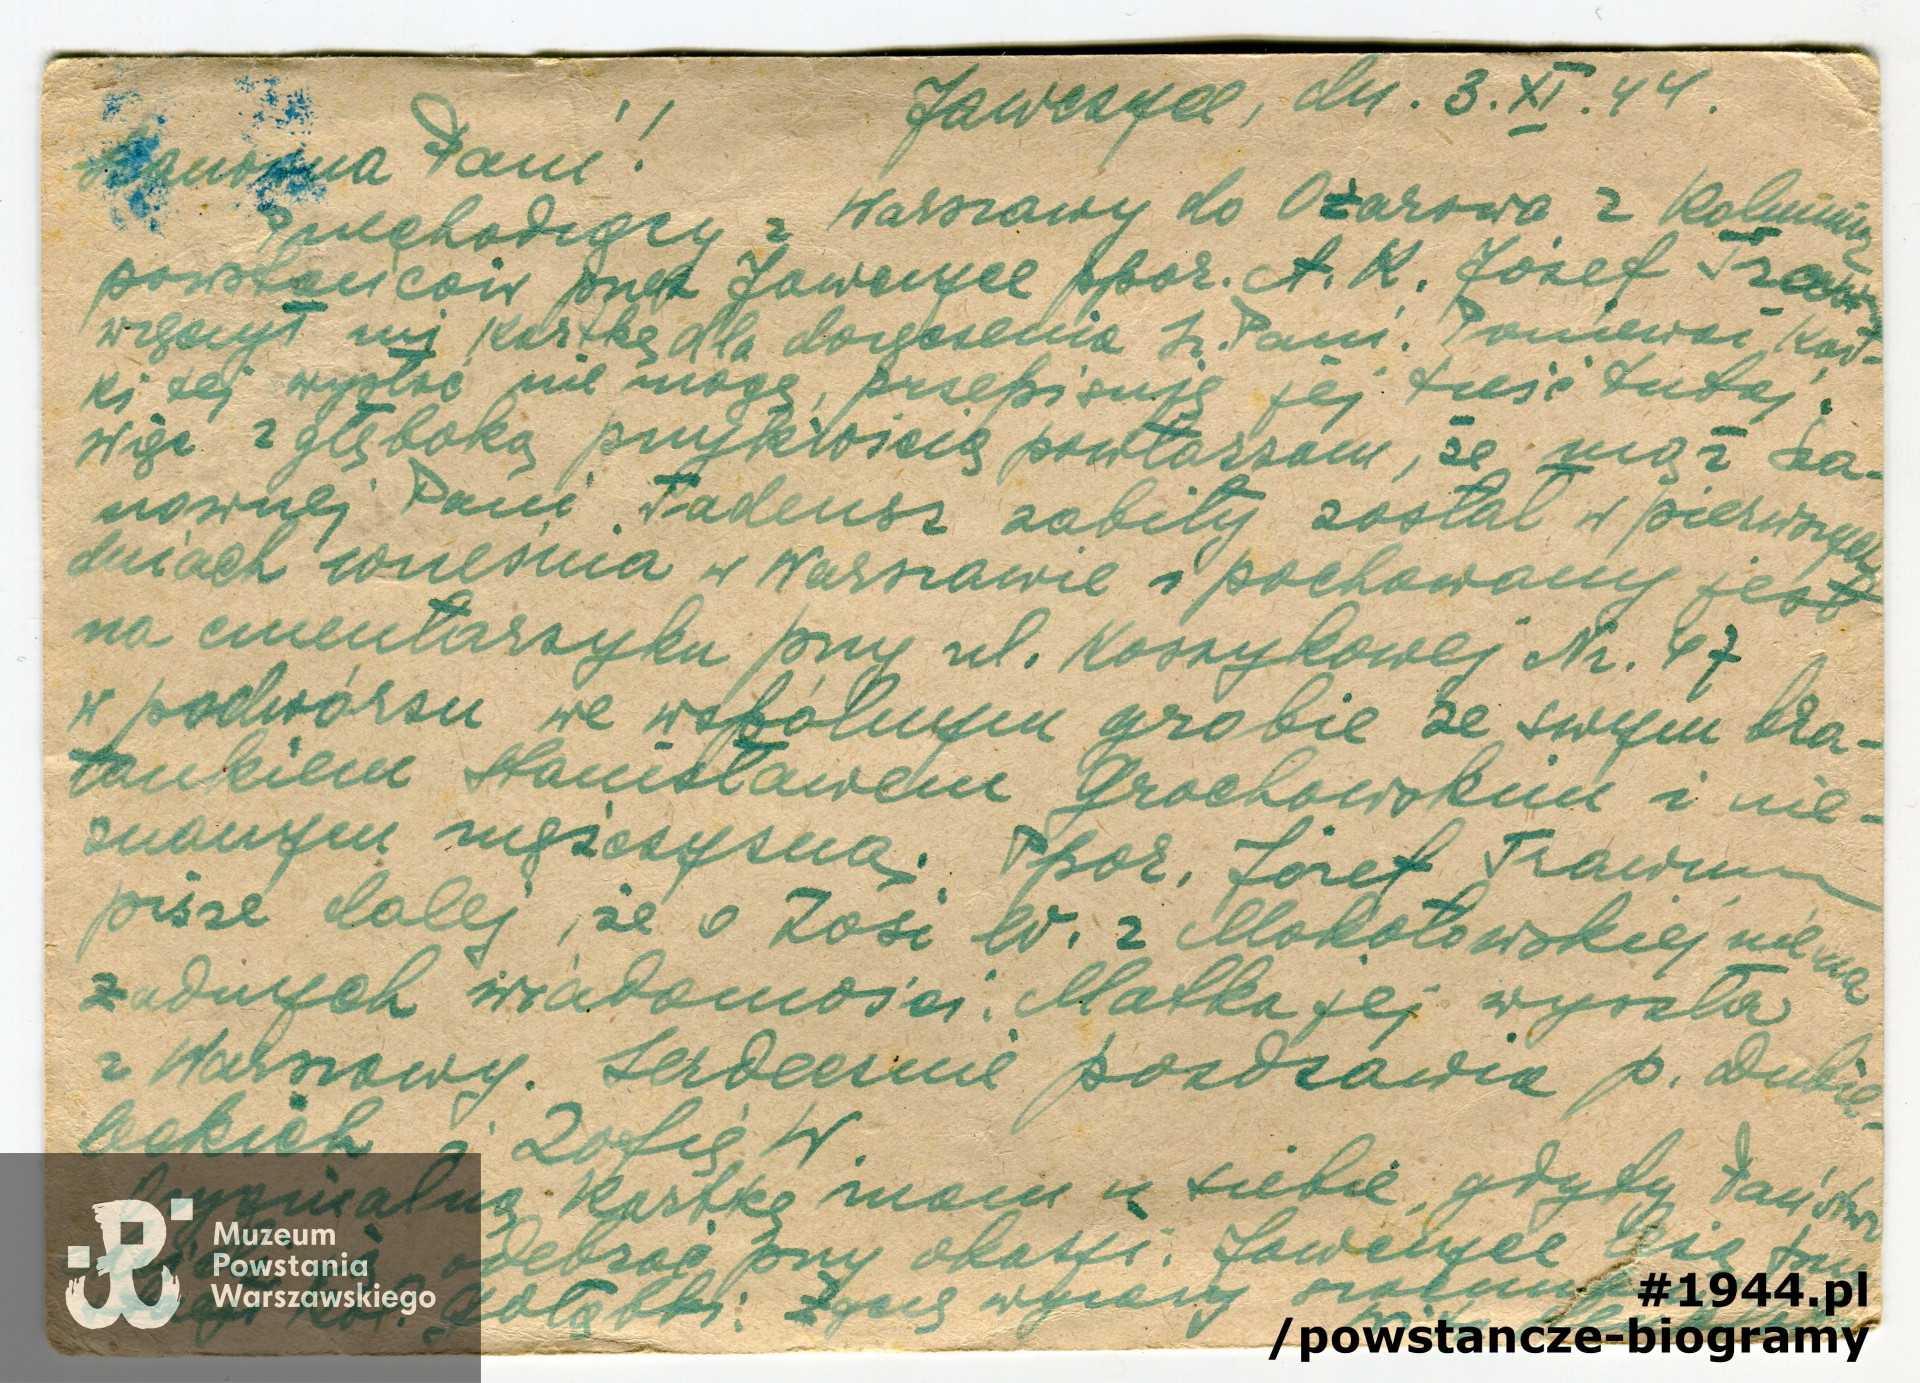 Jawczyce, dn. 3.XI.44.
Szanowna Pani!
Przechodzący z Warszawy do Ożarowa z kolumną
powstańców przez Jawczyce ppor. A.K. Józef
wręczył mi kartkę dla doręczenia Sz. Pani. Ponieważ kart-
ki tej wysłać nie mogę, przepisuję jej treść tutaj.
więc z głęboką przykrością powtarzam, że mąż Sza-
nownej Pani Tadeusz zabity został w pierwszych
dniach września w Warszawie i pochowany jest
na cmentarzyku przy ul. Koszykowej Nr. 47
w podwórzu we wspólnym grobie ze swym bra-
tankiem Stanisławem Grochowskim i nie-
znanym mężczyzną. Ppor. Józef
pisze dalej, że o Zosi W. z Mokotowskiej nie ma
żadnych wiadomości. Matka jej wyszła
z Warszawy. Serdecznie pozdrawia p.
i Zofię W.
Oryginalną kartkę mam u siebie, gdyby
odebrać przy okazji. Jawczyce
Gołąbki. Łączę wyrazy
Muzeum
Powstania
Warszawskiego
#1944.pl
/powstancze-biogramy